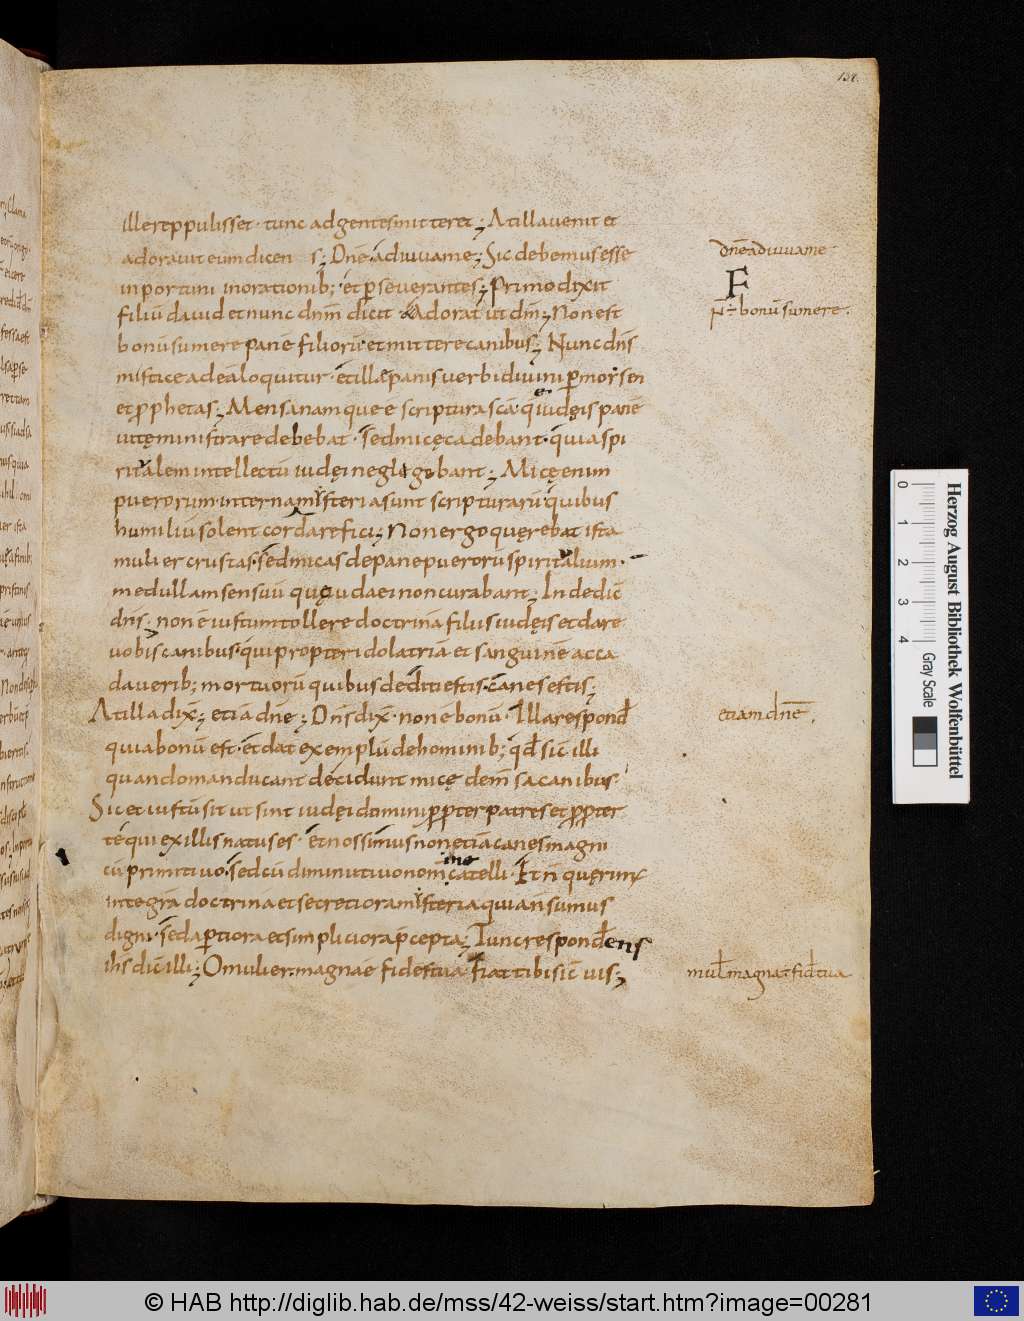 139.
ille reppulisset · tunc ad gentes mitteret ; At illa uenit et
adorauit eum dicen s ; Dnē adiuua me ; Sic debemus esse
inportuni in orationib; et pseuerantes ; Primo dixit
filiū dauid et nunc dnm̄ dicit & adorat ut dm̄ ; Non est
bonū sumere panē filiorū et mittere canibus ; Nunc dn̄s
mistice ad eā loquitur · et illæ panis uerbi diuini p morsen
et pphetas ; Mensa namque ē scriptura scā · q̄ iudęis panē
uitę ministrare debebat · sed micę cadebant · quia spi
ritalem intellectū iudęi neglegebant ; Micę enim
puerorum interna misteria sunt scripturarū quibus
humiliū solent corda refici ; Non ergo quęrebat ista
mulier crustas · sed micas de pane puerorū spiritalium ·
medullam sensuū quę iudaei non curabant ; Inde dic̄
dn̄s · non ē iustum tollere doctrinā filiis iudęis et dare
uobis canibus · qui propter idolatriā et sanguinē a cca
daverib; mortuorū quibus dediti estis · canes estis ;
At illa dix̄ ; etiā dnē ; Dn̄s dix̄ · non ē bonū · Illa respond̄
quia bonū est · et dat exemplū de hominib; qd̄ sic̄ illi
quando manducant decidunt micę de m̄sa canibus ·
Sic et iustū sit ut sint iudęi domini ppter patres et ppter
tē qui ex illis natus es · et nos simus non etiā canes magni
cū primitiuo · sed cū diminutiuo nomine catelli · Et n̄ quęrim̄
integrā doctrinā et secretiora misteria quia n̄ sumus
digni · sed aptiora et simpliciora p̄cepta ; Tunc respondens
ih̄s dic̄ illi ; O mulier · magna ē fides tua · fiat tibi sic̄ uis ;
dnē adiuua me
F
bonū sumere .
etiam dnē .
mul̄ magna ē fid̄ tua
Herzog August Bibliothek Wolfenbüttel
0 1 2 3 4
Gray Scale
© HAB http://diglib.hab.de/mss/42-weiss/start.htm?image=00281